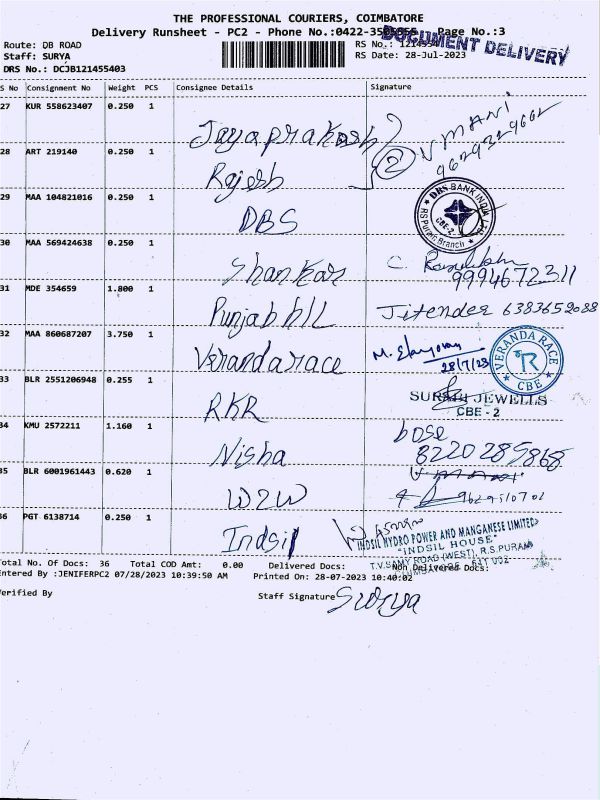 THE PROFESSIONAL COURIERS, COIMBATORE
Delivery Runsheet - PC2 - Phone No.:0422-3505555 Page No.:3
DOCUMENT DELIVERY
Route: DB ROAD
RS No.:
Staff: SURYA
RS Date: 28-Jul-2023
DRS No.: DCJB121455403
S No Consignment No Weight PCS Consignee Details Signature
27 KUR 558623407 0.250 1
Jayaprakash
V MANI
9629329662
28 ART 219140 0.250 1
Rajesh
2
29 MAA 104821016 0.250 1
DBS
DBS BANK INDIA LTD
RS Puram Branch
CBE-2
30 MAA 569424638 0.250 1
Shankar
9994672311
31 MDE 354659 1.800 1
Punjab
Jitender 6383652088
32 MAA 860687207 3.750 1
Verandarace
28/7/23
VERANDA RACE
CBE
33 BLR 2551206948 0.255 1
RKR
JEWELLS
CBE - 2
34 KMU 2572211 1.160 1
Nisha
bose
8220285868
35 BLR 6001961443 0.620 1
W2W
36 PGT 6138714 0.250 1
Indsil
INDSIL HYDRO POWER AND MANGANESE LIMITED
"INDSIL HOUSE"
T.V.SAMY ROAD (WEST), R.S.PURAM
COIMBATORE - 641 002
Total No. Of Docs: 36 Total COD Amt: 0.00 Delivered Docs: Non Delivered Docs:
Entered By :JENIFERPC2 07/28/2023 10:39:50 AM Printed On: 28-07-2023 10:40:02
Verified By
Staff Signature Surya